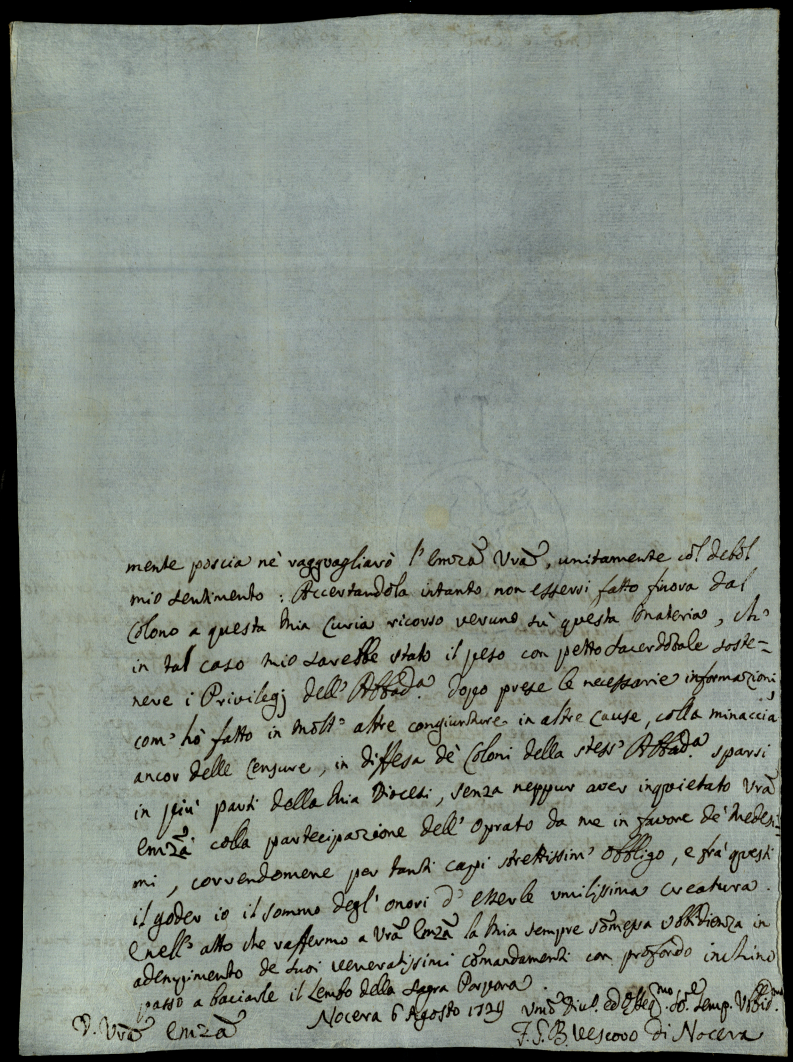 mente poscia nè ragguagliarò l'Emza Vra, unitamente col debol
mio sentimento : Accertandola intanto non essersi fatto finora dal
Colono a questa mia Curia ricorso veruno sù questa materia, ch'
in tal caso mio sarebbe stato il peso con petto sacerdotale soste=
nere i Privilegj dell'Abbada. dopo prese le necessarie informazioni
com'hò fatto in molt'altre congiunture in altre cause, colla minaccia
ancor delle Censure, in diffesa dè Coloni della stess'Abbada. sparsi
in più parti della mia Diocesi, senza neppur aver inquietato Vra
Emza colla partecipazione dell'oprato da me in favore dè medesi=
mi, correndomene per tanti cappi strettissim'obbligo, e frà questi
il goder io il sommo degl'onori d'esserle umilissima creatura.
E nell'atto che raffermo a Vra Emza la mia sempre somessa ubbidienza in
adempimento de suoi veneratissimi comandamenti con profondo inchino
passo a baciarle il Lembo della Sagra Porpora.
Nocera 6 Agosto 1729
D. Vra Emza
F. S. B. Vescovo di Nocera